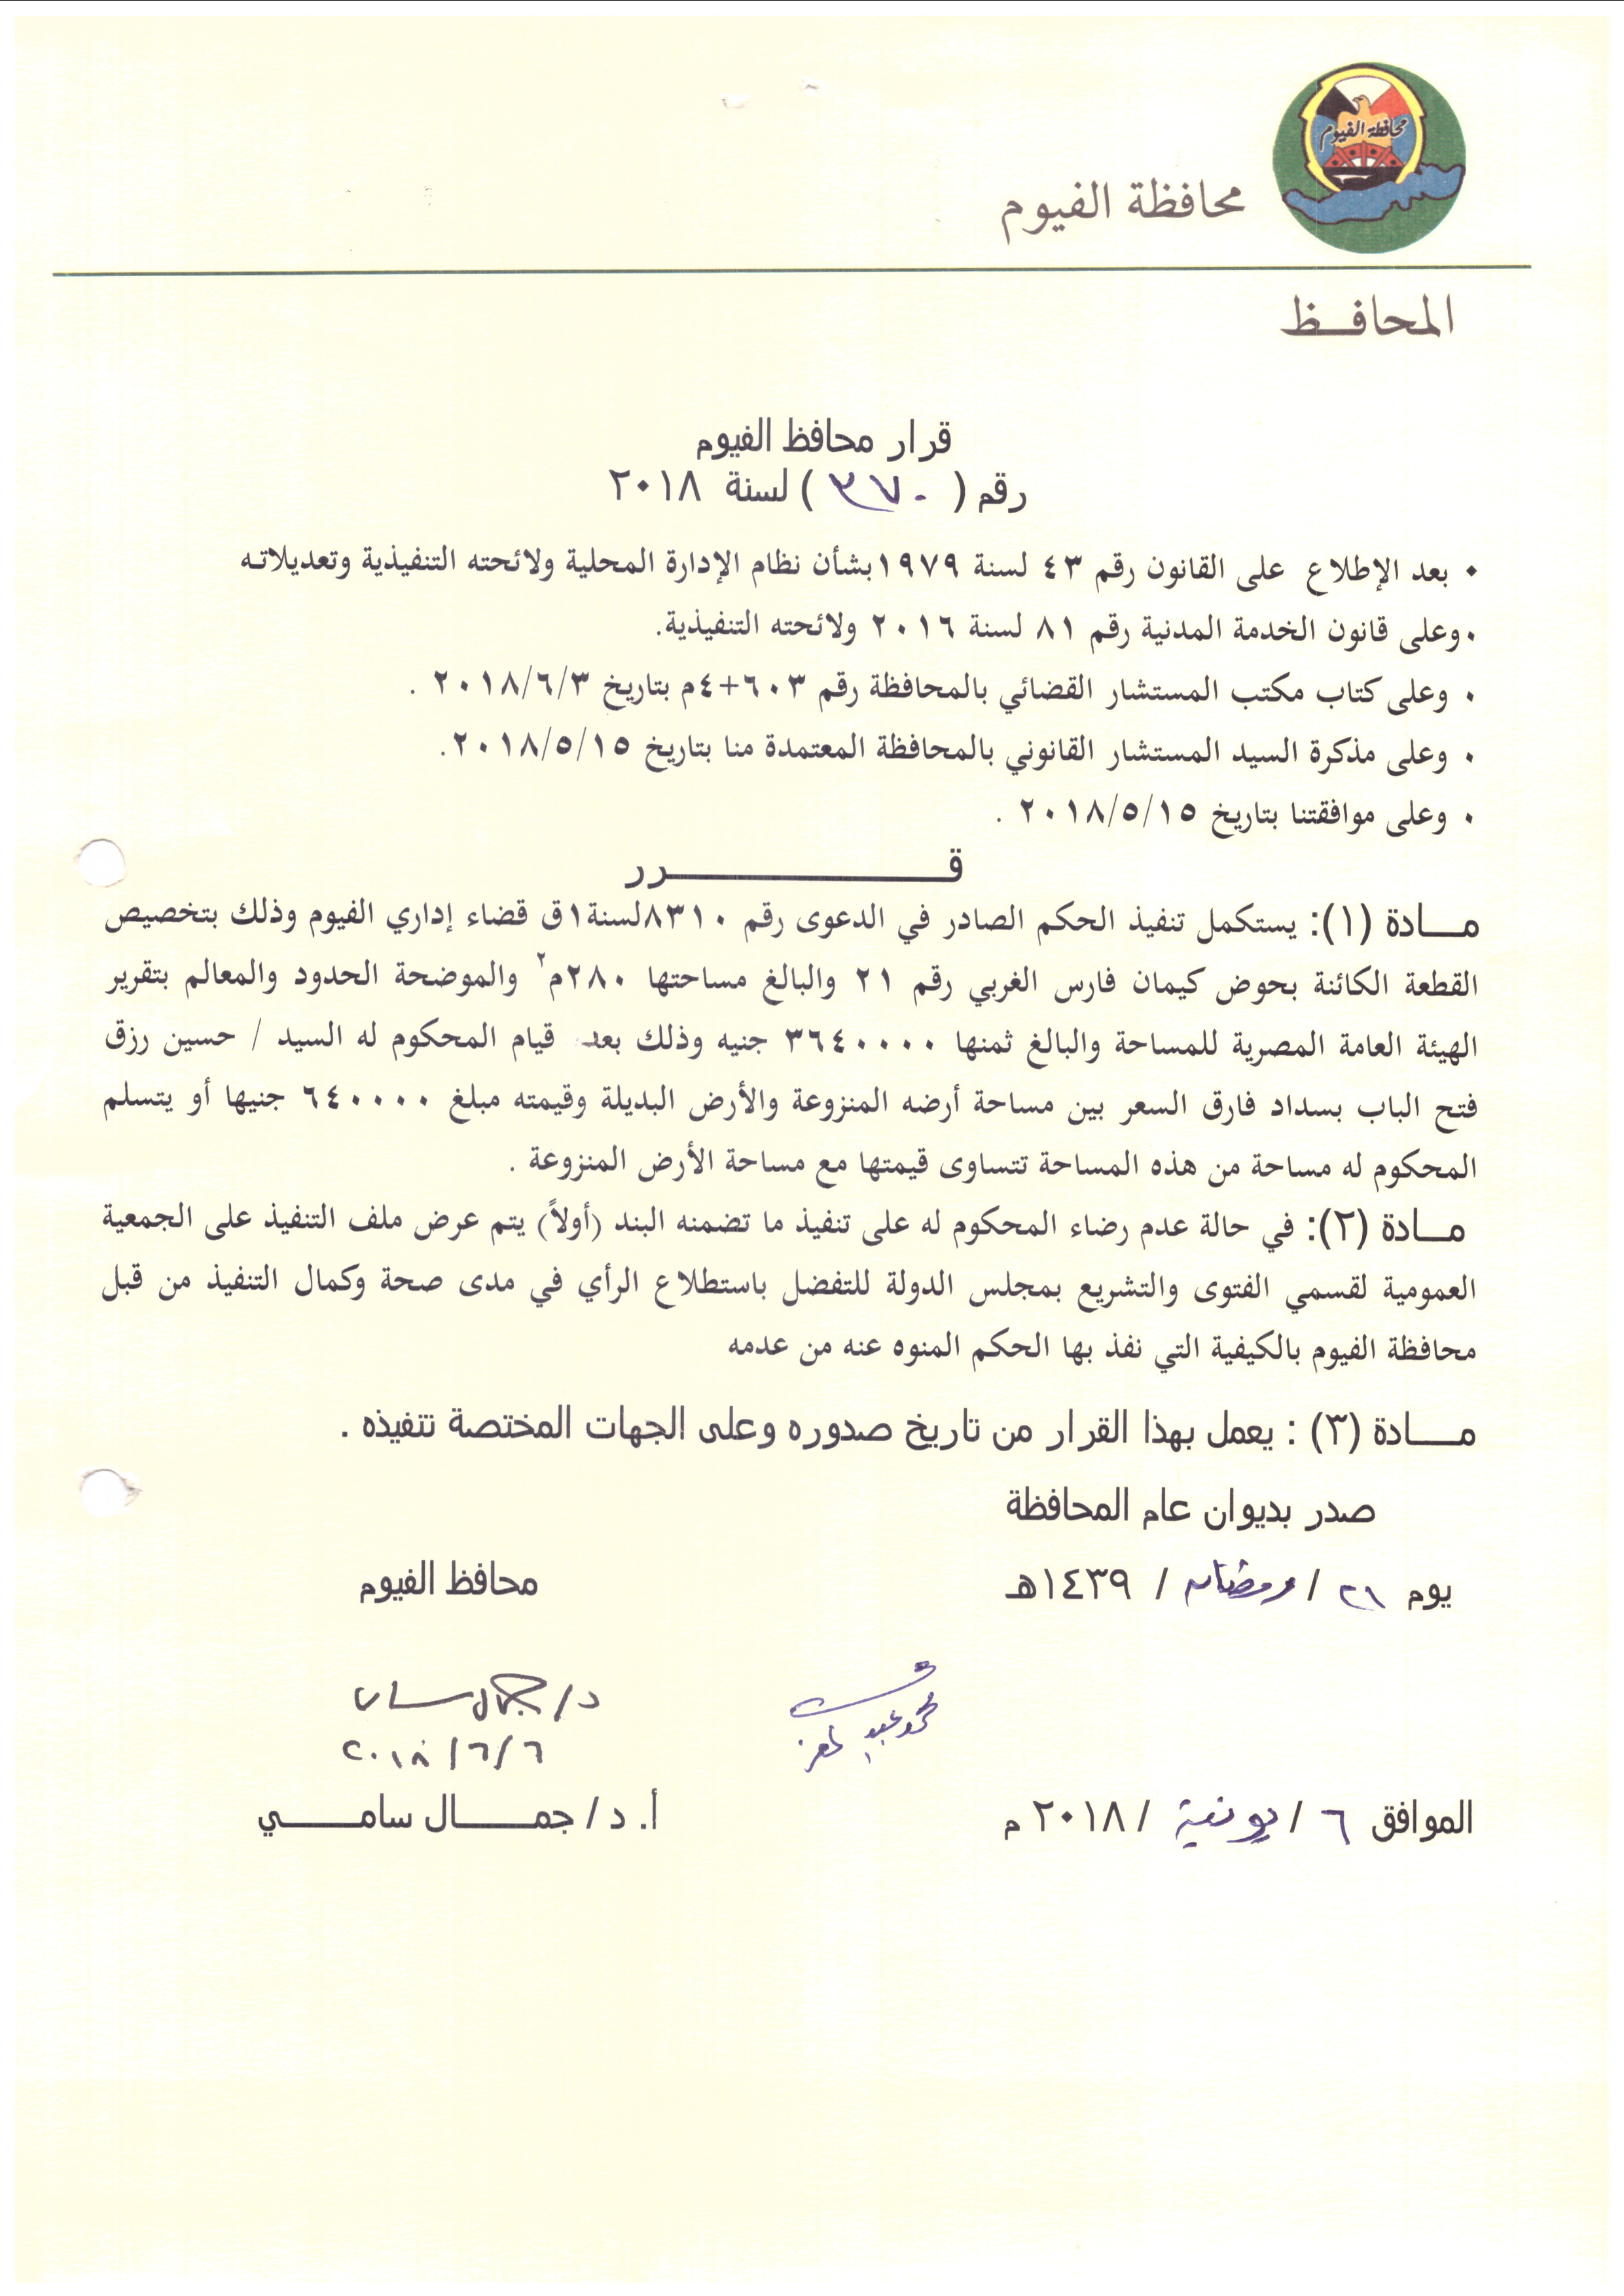 محافظة الفيوم
محافظة الفيوم
المحافـــظ
قرار محافظ الفيوم
رقم ( ٣٧٠ ) لسنة ٢٠١٨
• بعد الإطلاع على القانون رقم ٤٣ لسنة ١٩٧٩بشأن نظام الإدارة المحلية ولائحته التنفيذية وتعديلاته
• وعلى قانون الخدمة المدنية رقم ٨١ لسنة ٢٠١٦ ولائحته التنفيذية.
• وعلى كتاب مكتب المستشار القضائي بالمحافظة رقم ٦٠٣+٤م بتاريخ ٢٠١٨/٦/٣ .
• وعلى مذكرة السيد المستشار القانوني بالمحافظة المعتمدة منا بتاريخ ٢٠١٨/٥/١٥.
• وعلى موافقتنا بتاريخ ٢٠١٨/٥/١٥ .
قـــــــــــــرر
مـــادة (١): يستكمل تنفيذ الحكم الصادر في الدعوى رقم ٨٣١٠لسنة١ق قضاء إداري الفيوم وذلك بتخصيص
القطعة الكائنة بحوض كيمان فارس الغربي رقم ٢١ والبالغ مساحتها ٢٨٠م٢ والموضحة الحدود والمعالم بتقرير
الهيئة العامة المصرية للمساحة والبالغ ثمنها ٣٦٤٠٠٠٠ جنيه وذلك بعد قيام المحكوم له السيد / حسين رزق
فتح الباب بسداد فارق السعر بين مساحة أرضه المنزوعة والأرض البديلة وقيمته مبلغ ٦٤٠٠٠٠ جنيها أو يتسلم
المحكوم له مساحة من هذه المساحة تتساوى قيمتها مع مساحة الأرض المنزوعة .
مـــادة (٢): في حالة عدم رضاء المحكوم له على تنفيذ ما تضمنه البند (أولاً) يتم عرض ملف التنفيذ على الجمعية
العمومية لقسمي الفتوى والتشريع بمجلس الدولة للتفضل باستطلاع الرأي في مدى صحة وكمال التنفيذ من قبل
محافظة الفيوم بالكيفية التي نفذ بها الحكم المنوه عنه من عدمه
مـــادة (٣) : يعمل بهذا القرار من تاريخ صدوره وعلى الجهات المختصة تنفيذه .
صدر بديوان عام المحافظة
يوم ٢١ / رمضان / ١٤٣٩هـ
محافظ الفيوم
د/ جمال سامى
٢٠١٨/٦/٦
الموافق ٦ / يونية / ٢٠١٨ م
أ. د/ جمـــال سامـــي